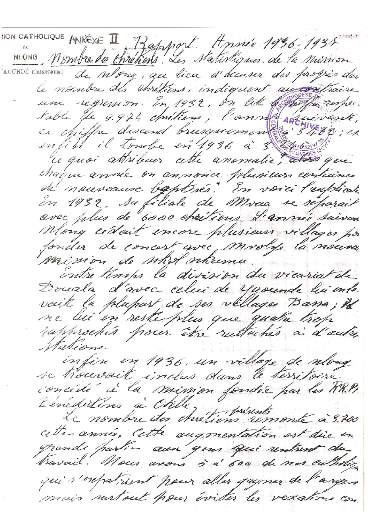 ION CATHOLIQUE
DE
NLONG
ANNEXE II
Rapport Année 1936-193
Nombre des chrétiens. Les statistiques de la mission
de Nlong, au lieu d'accuser des progrès dans
le nombre des chrétiens, indiquent au contraire
une regression. En 1932, on
table de 9.924 chrétiens; l'année suivante,
ce chiffre descend brusquement à
enfin il tombe en 1936 à
A quoi attribuer cette anomalie, alors que
chaque année on annonce plusieurs centaines
de nouveaux baptisés? En voici l'explication
En 1932, sa filiale de se séparait
avec plus de 6000 chrétiens. L'année suivante
Nlong cédait encore plusieurs villages pour
fonder de concert avec la nouvelle
mission de
Entre temps la division du vicariat de
Douala d'avec celui de Yaoundé lui enle-
vait la plupart de ses villages Bassa; il
ne lui en reste plus que quatre trop
rapprochés pour être rattachés à d'autres
stations.
Enfin en 1936 un village de Nlong
se trouvait inclus dans le territoire
concédé à la mission fondée par les RR.PP.
Bénédictins à
Le nombre des chrétiens présents remonte à 3.700
cette année, cette augmentation est due en
grande partie aux gens qui rentrent du
travail. Nous avons 5 à 600 de nos catholiques
qui s'expatrient pour aller gagner de l'argent
mais surtout pour éviter les vexations con
ARCHIVES